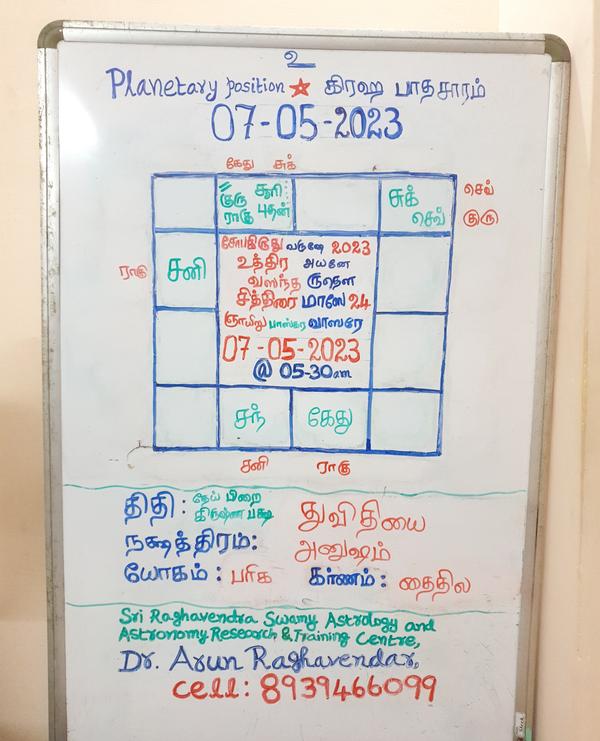 உ
Planetary position ☆ கிரஹ பாதசாரம்
07-05-2023
கேது சுக்
குரு சூரி
ராகு புதன்
சுக்
செவ்
செவ்
குரு
ராகு
சனி
சோபகிருது வருஷே 2023
உத்திர அயனே
வஸந்த ருதௌ
சித்திரை மாஸே 24
ஞாயிறு பாஸ்கர வாஸரே
07-05-2023
@ 05-30am
சந்
கேது
சனி
ராகு
திதி : தேய் பிறை
கிருஷ்ண பக்ஷ
துவிதியை
நக்ஷத்திரம்: அனுஷம்
யோகம் : பரிக கர்ணம் : தைதில
Sri Raghavendra Swamy Astrology and
Astronomy Research & Training Centre,
Dr. Arun Raghavendar,
cell : 8939466099